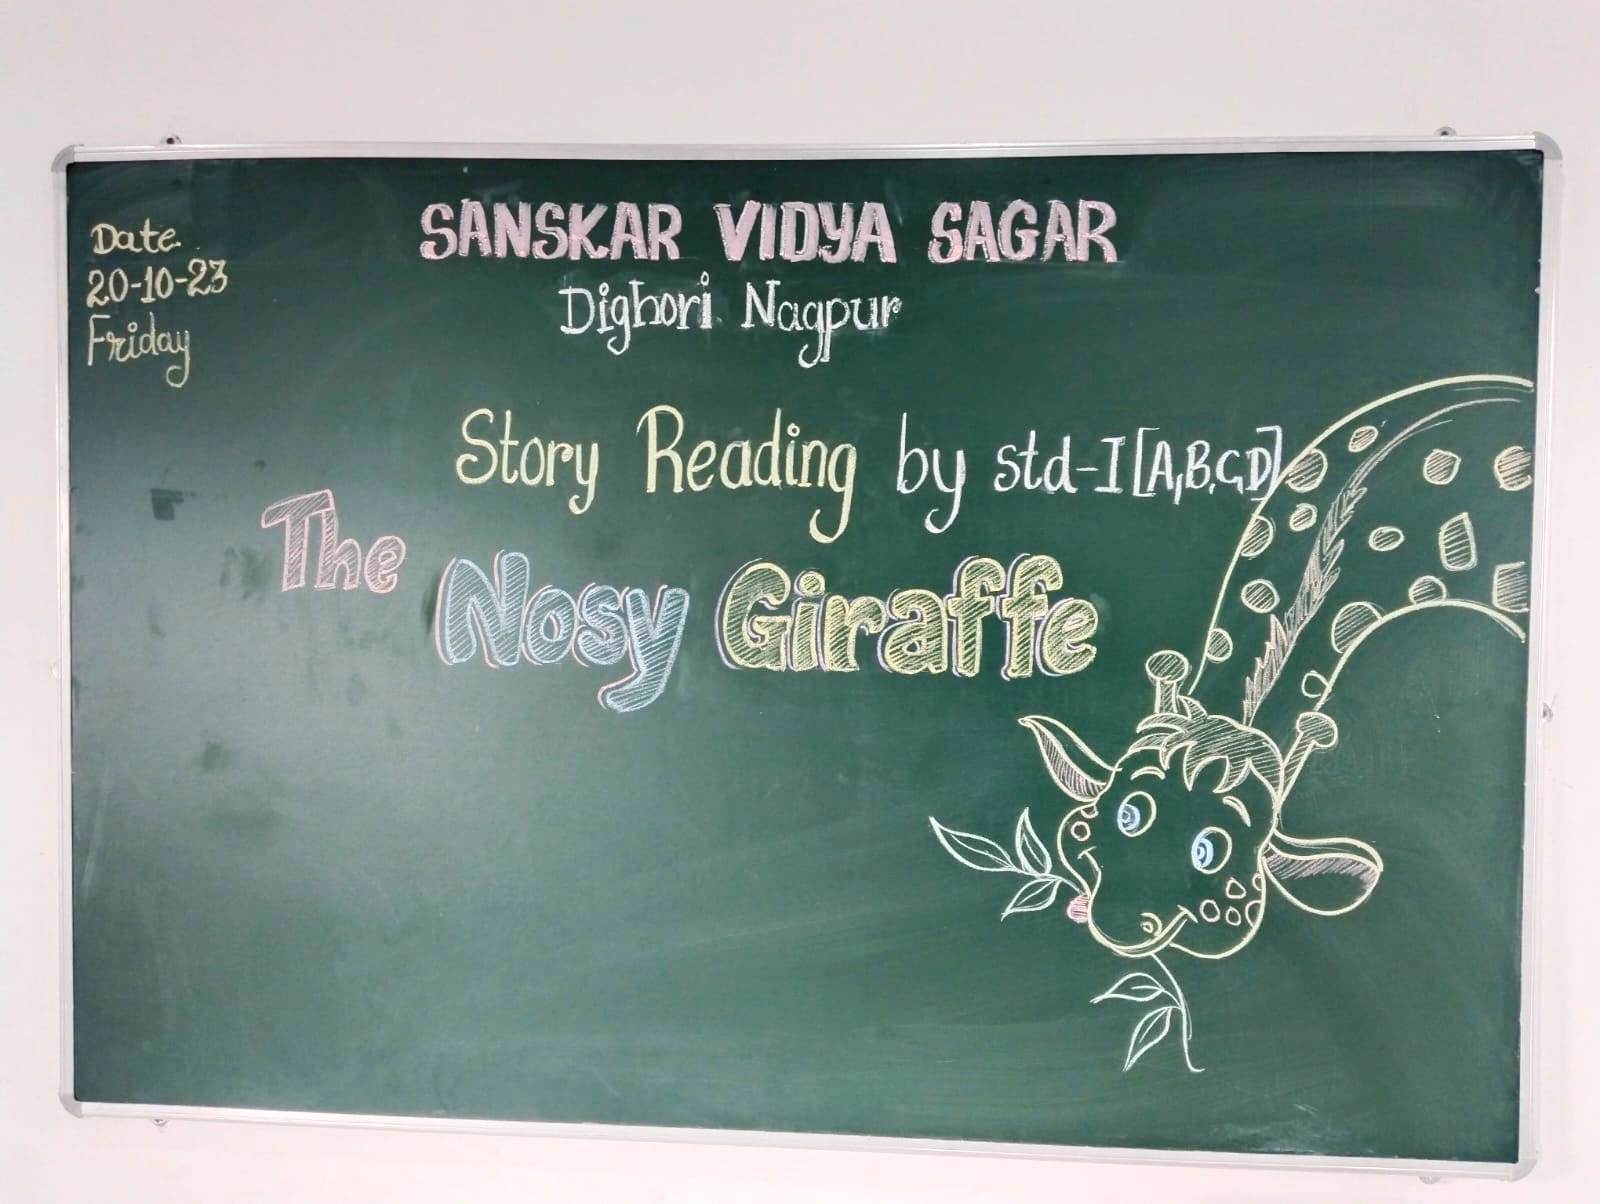 Date
20-10-23
Friday
SANSKAR VIDYA SAGAR
Dighori Nagpur
Story Reading by std-I[A,B,C,D]
The Nosy Giraffe